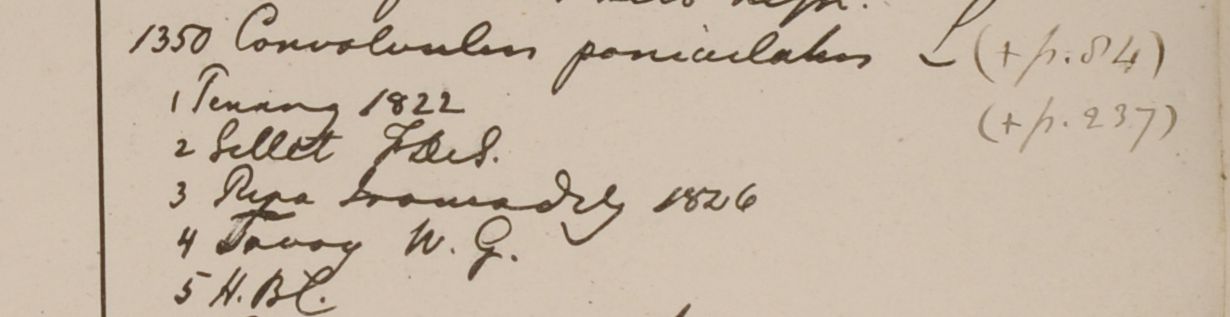 1350 Convolvulus paniculatus L (+ p. 84)
1 Penang 1822 (+ p. 237)
2 Sillet F.DeS.
3 Ripa 1826
4 Tavoy W. G.
5 H.BC.